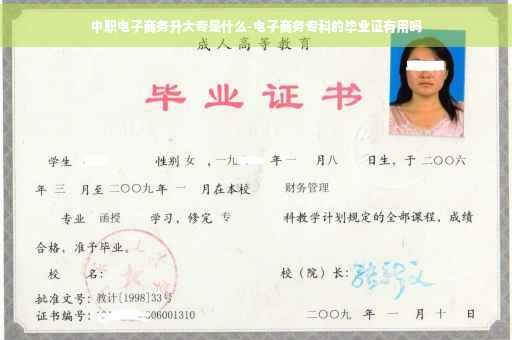 中职电子商务升大专是什么-电子商务专科的毕业证有用吗
成人高等教育
毕业证书
学生 性别 女 ，一九 年一 月八 日生，于二〇〇六
年 三 月至二〇〇九年 一 月在本校 财务管理
专业 函授 学习，修完 专 科教学计划规定的全部课程，成绩
合格，准予毕业。
校 名： 校（院）长：
批准文号：教计[1998]33号
证书编号： 06001310 二〇〇九 年 一 月 十 日